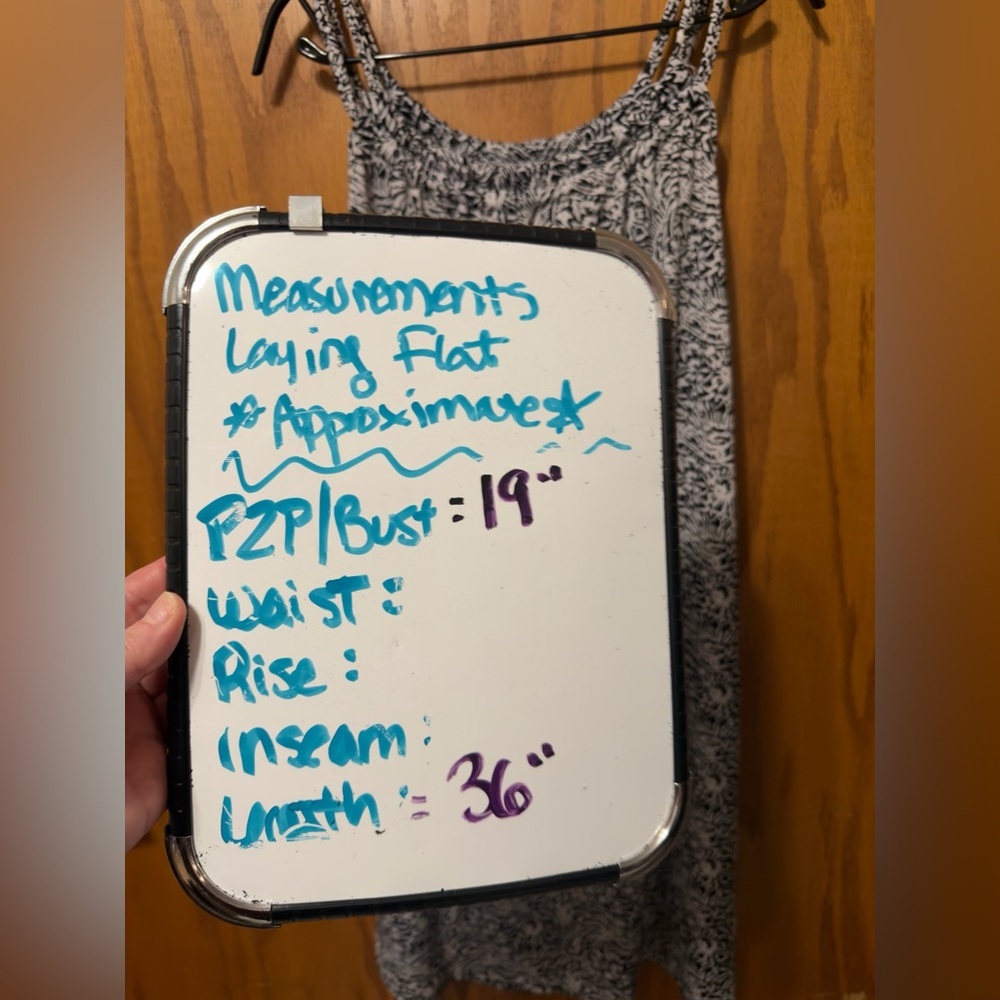 Measurements
Laying Flat
*Approximate*
P2P/Bust: 19"
Waist:
Rise:
Inseam:
Length: 36"